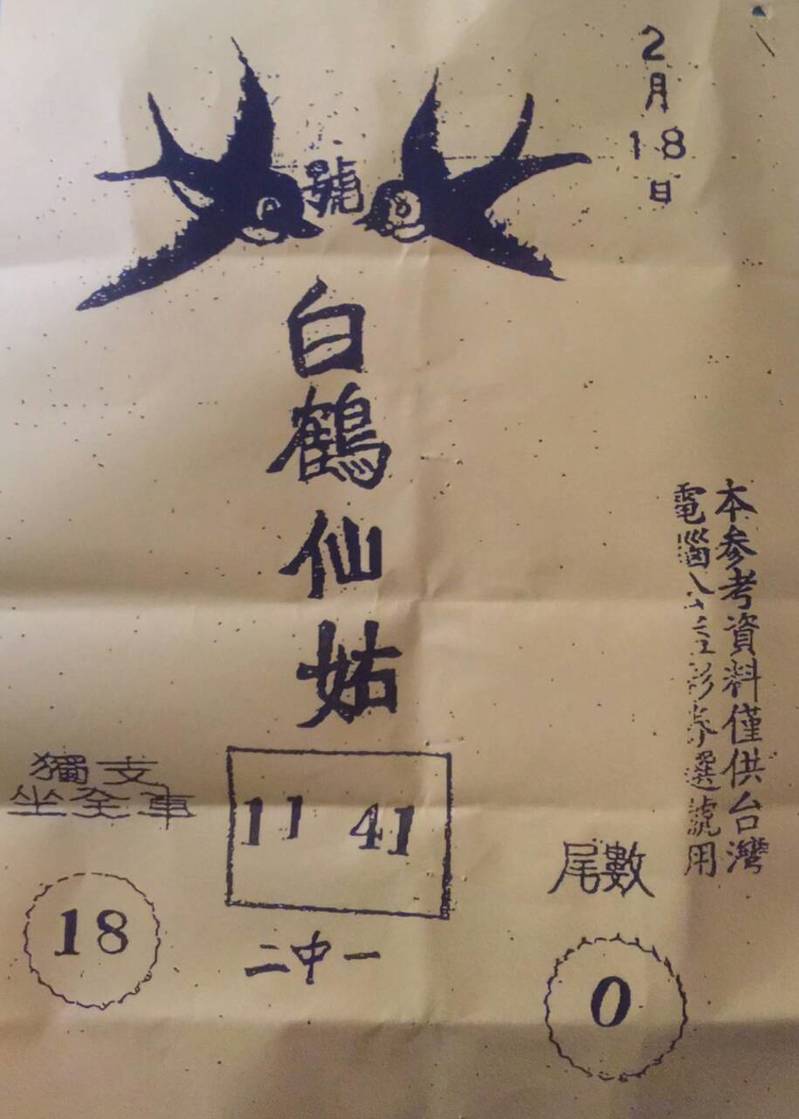 2月18日
號
白鶴仙姑
本參考資料僅供台灣
電腦八十三彩券選號用
獨支
坐全車
18
11 41
二中一
尾數
0